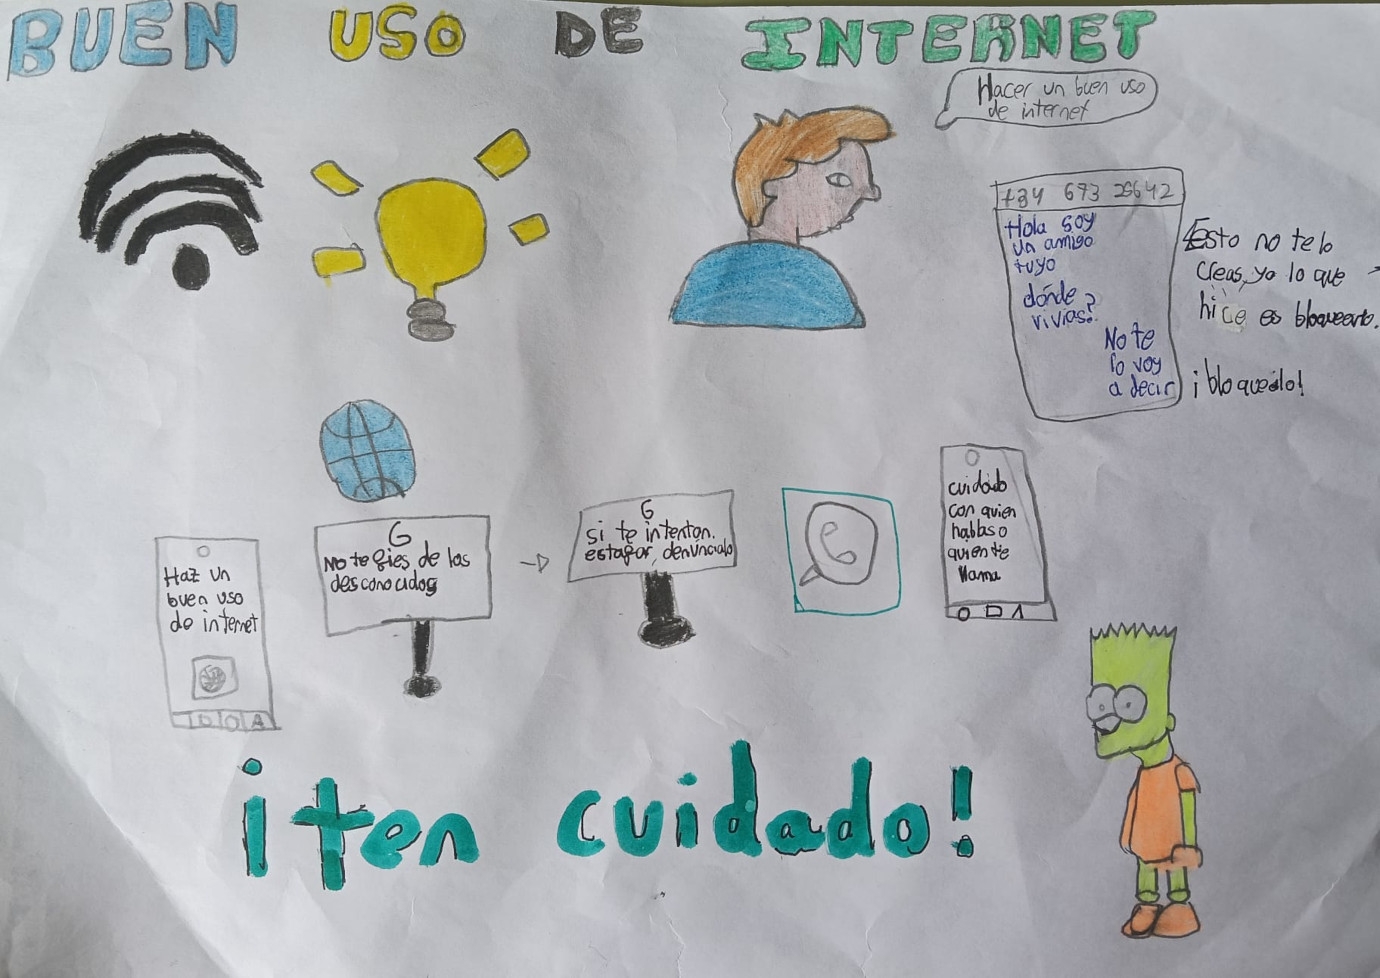 BUEN USO DE INTERNET
Hacer un buen uso
de internet
+34 673 25642
Hola soy
un amigo
tuyo
dónde
vivias?
No te
lo voy
a decir
Esto no te lo
creas, yo lo que
hice es bloquearlo.
¡bloquealo!
Haz un
buen uso
de internet
G
No te fies de los
desconocidos
G
si te intentan
estafar, denuncialo
cuidado
con quien
hablas o
quien te
llama
¡ten cuidado!